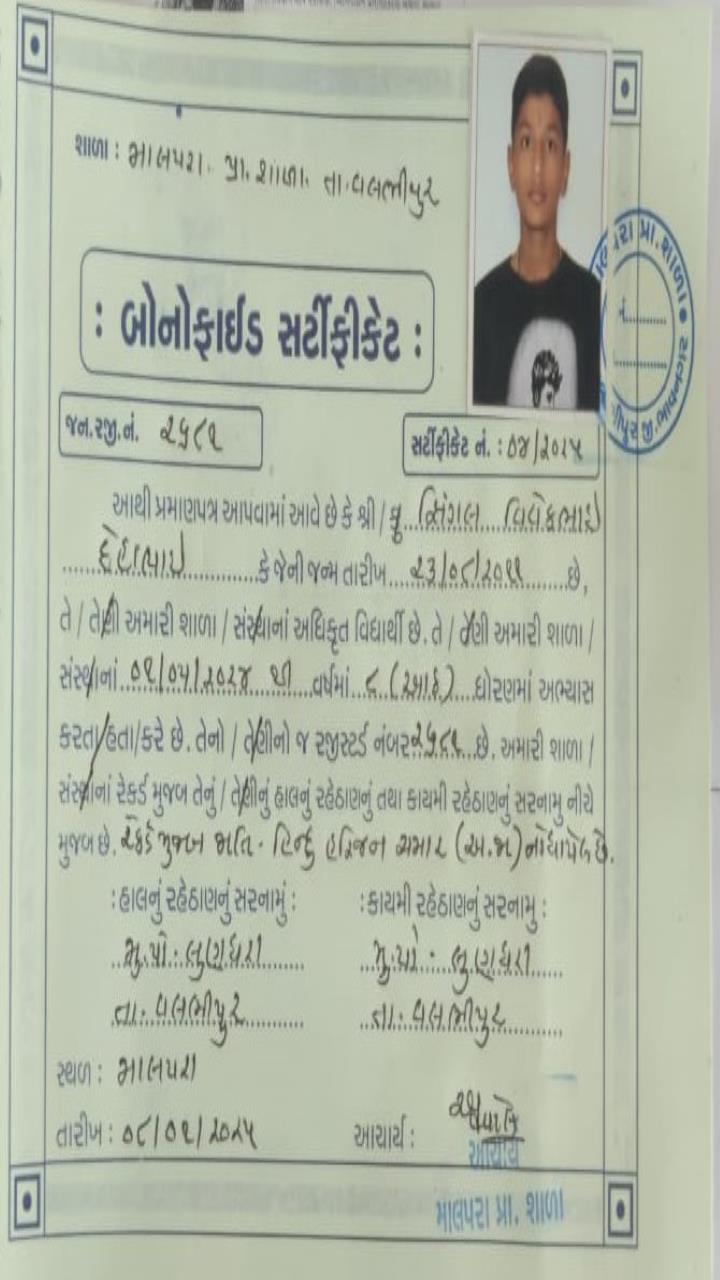 શાળા : માલપરા. પ્રા. શાળા. તા. વલભીપુર
: બોનોફાઈડ સર્ટીફીકેટ :
જન.રજી.નં. ૨૫૮૧
સર્ટીફીકેટ નં. : ૦૪/૨૦૨૫
આથી પ્રમાણપત્ર આપવામાં આવે છે કે શ્રી / કુ. સિંગલ વિવેકભાઇ
કે જેની જન્મ તારીખ ૨૩/૦૮/૨૦૧૧ છે,
તે / તેણી અમારી શાળા / સંસ્થાનાં અધિકૃત વિદ્યાર્થી છે. તે / તેણી અમારી શાળા /
સંસ્થાનાં ૦૧/૦૫/૨૦૨૪ થી વર્ષમાં ૮ (આઠ) ધોરણમાં અભ્યાસ
કરતા/હતા/કરે છે. તેનો / તેણીનો જ રજીસ્ટર્ડ નંબર ૨૫૮૧ છે. અમારી શાળા /
સંસ્થાનાં રેકર્ડ મુજબ તેનું / તેણીનું હાલનું રહેઠાણનું તથા કાયમી રહેઠાણનું સરનામુ નીચે
મુજબ છે. રેકર્ડ મુજબ જાતિ. હિન્દુ હરિજન ચમાર (અ.જા) નોંધાયેલ છે.
: હાલનું રહેઠાણનું સરનામું : : કાયમી રહેઠાણનું સરનામુ :
મુ.પો. લુણધરી મુ.પો. લુણધરી
તા. વલભીપુર તા. વલભીપુર
સ્થળ : માલપરા
તારીખ : ૦૮/૦૧/૨૦૨૫ આચાર્ય :
આચાર્ય
માલપરા પ્રા. શાળા
પ્રા. શાળા
નં.